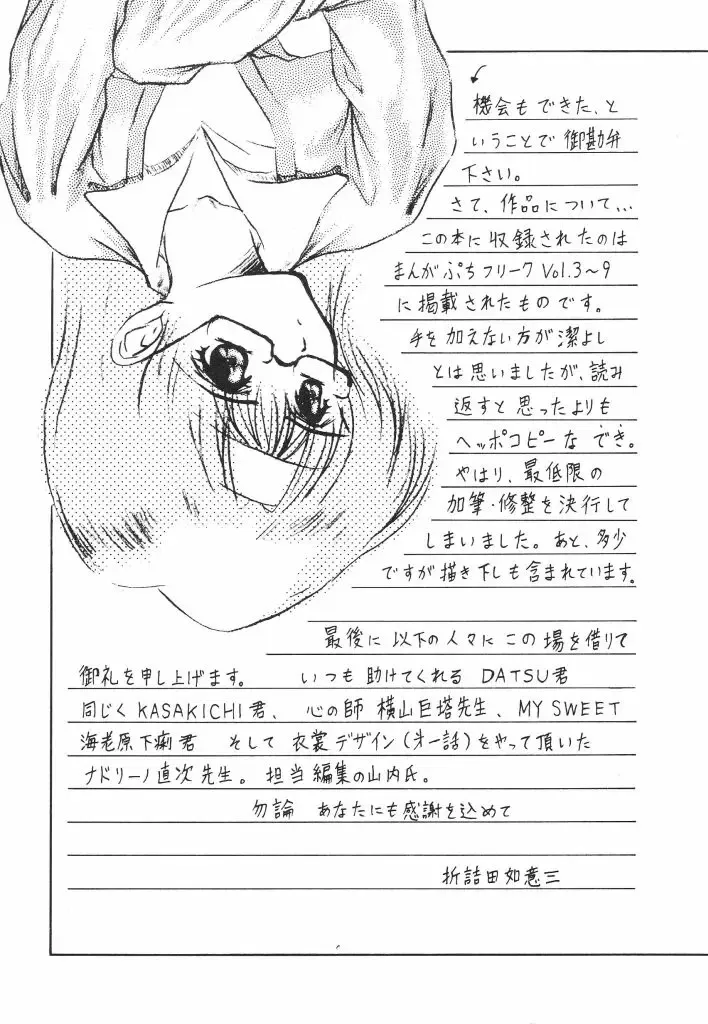 機会もできた、と
いうことで御勘弁
下さい。
さて、作品について…
この本に収録されたのは
まんがぷちフリークVol.3〜9
に掲載されたものです。
手を加えない方が潔よし
とは思いましたが、読み
返すと思ったよりも
ヘッポコピーなでき。
やはり、最低限の
加筆・修整を決行して
しまいました。あと、多少
ですが描き下しも含まれています。
最後に以下の人々にこの場を借りて
御礼を申し上げます。 いつも助けてくれるDATSU君
同じくKASAKICHI君、心の師 横山巨塔先生、MY SWEET
海老原下痢君 そして衣裳デザイン(オ一話)をやって頂いた
ナドリーノ直次先生。担当編集の山内氏。
勿論 あなたにも感謝を込めて
折詰田如意三